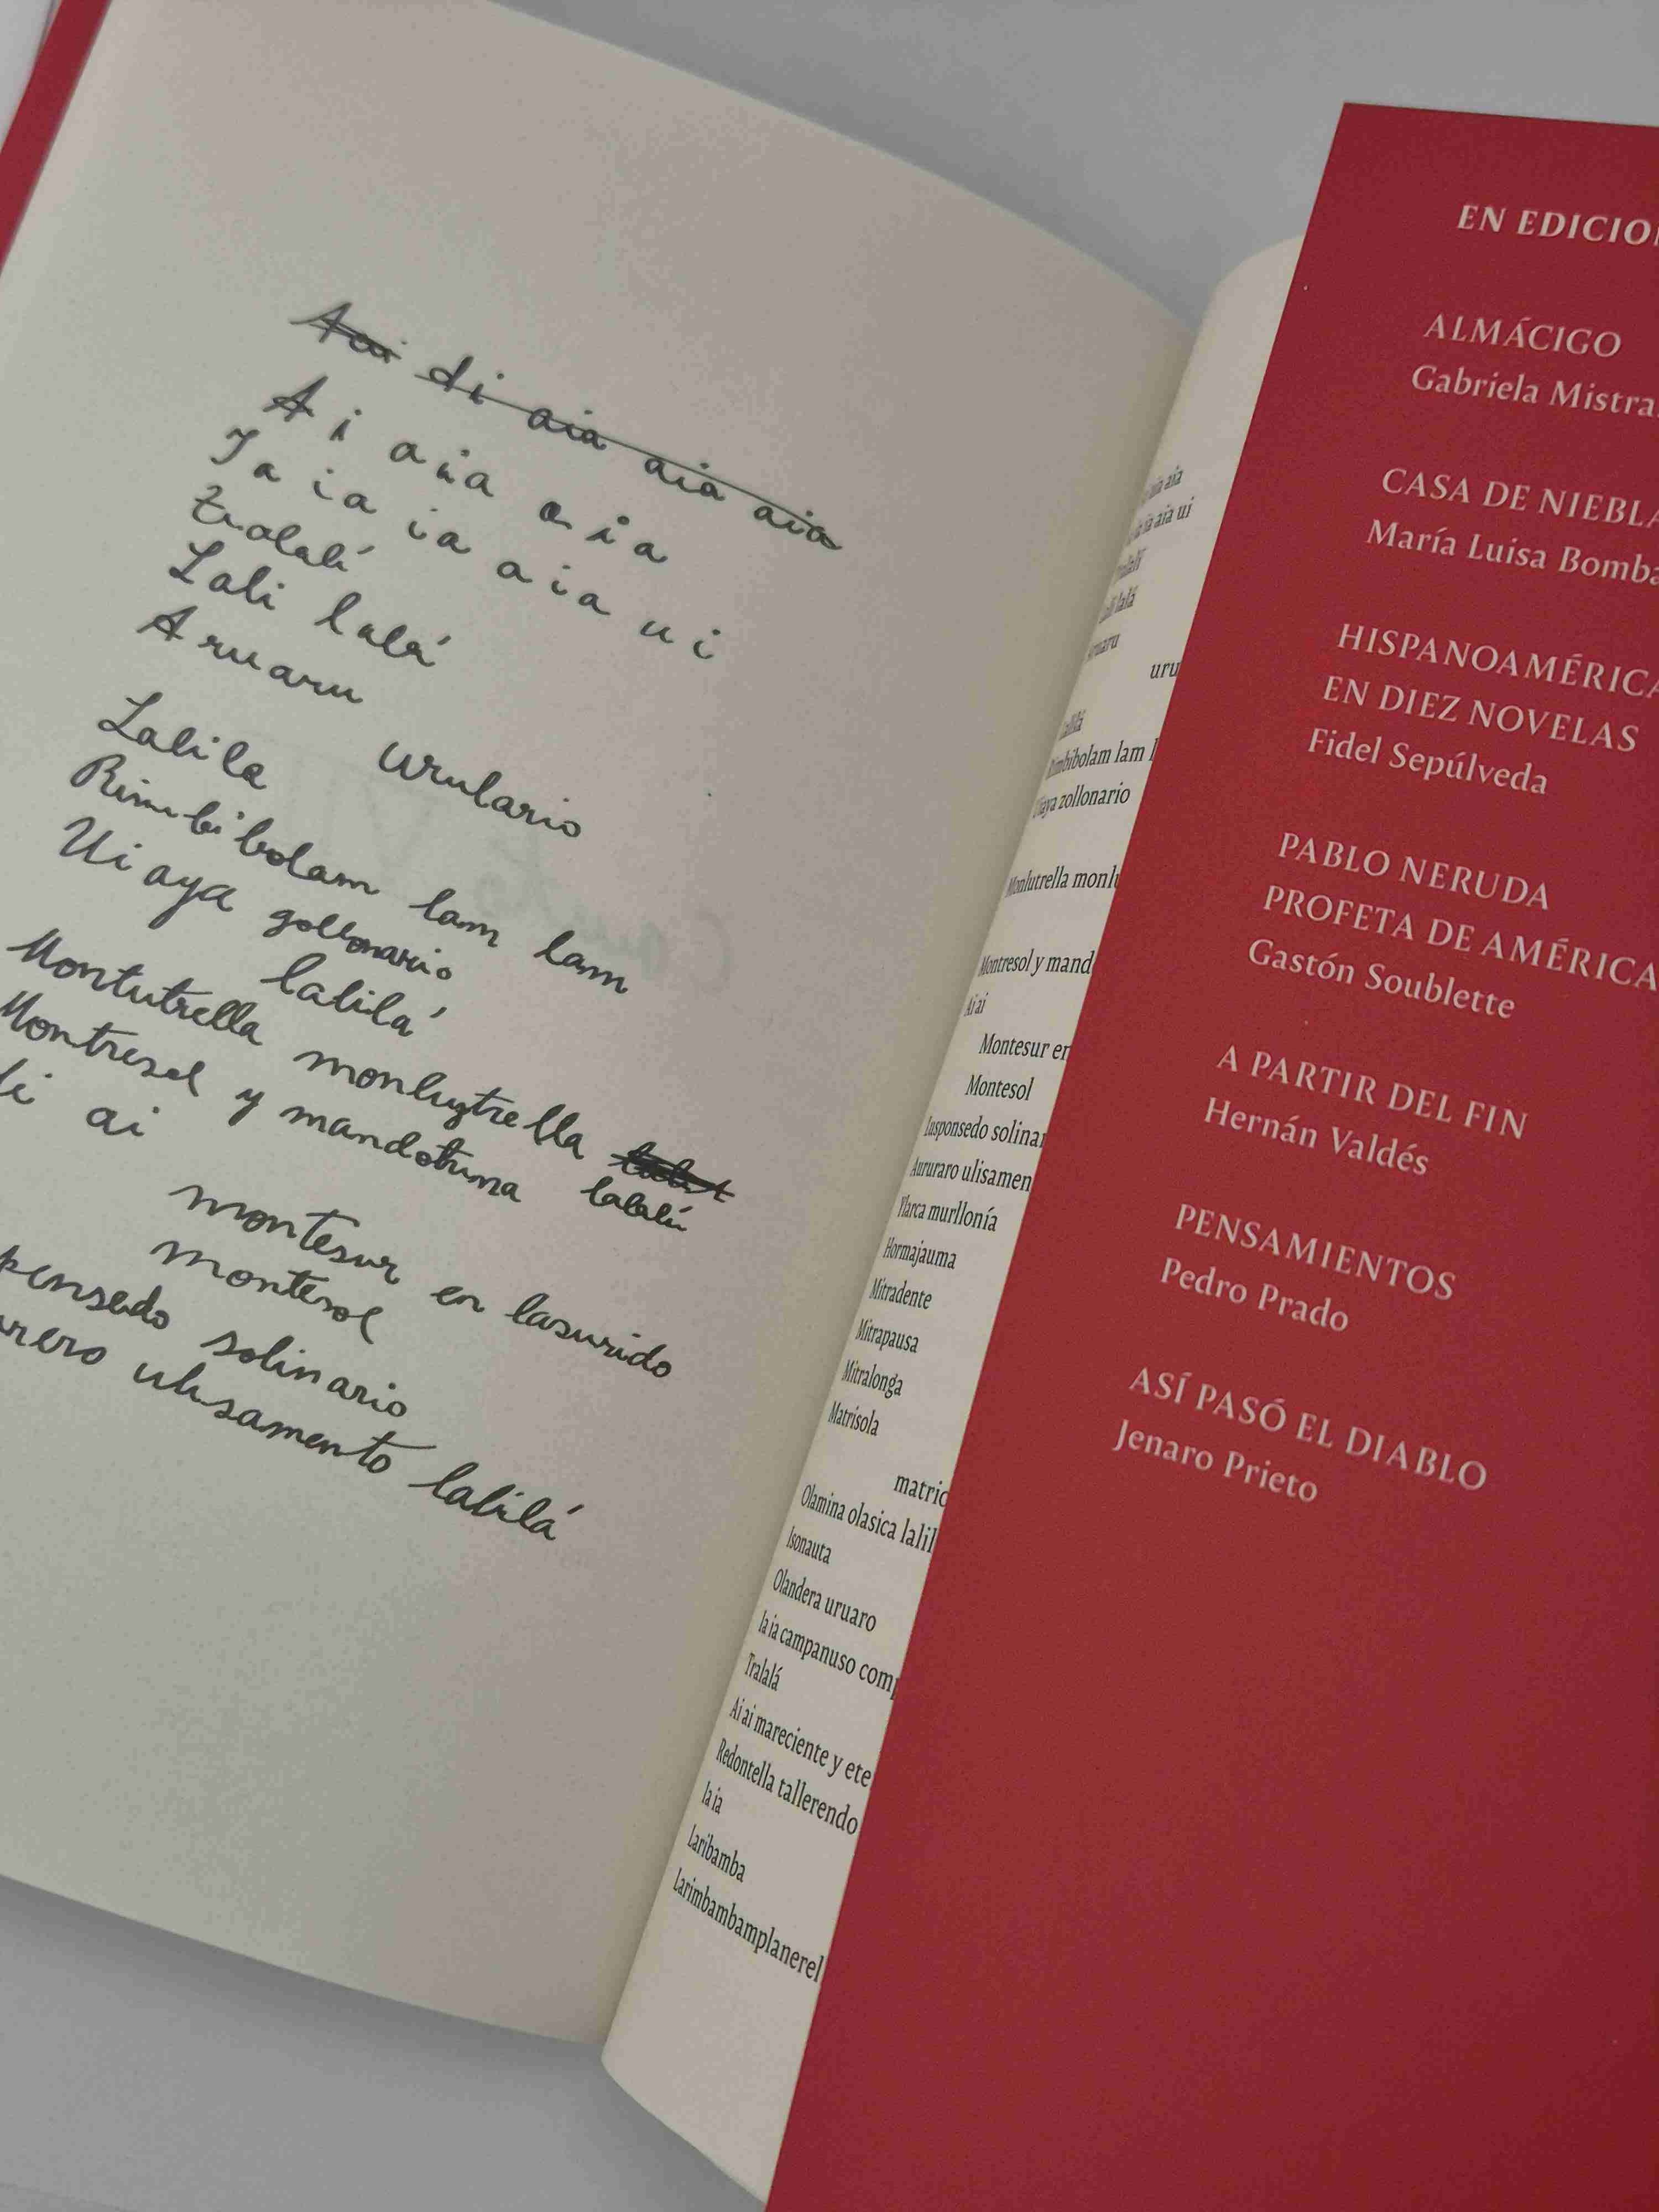 Ai aia aia aia
A i a i a a i a
I a i a i a a i a u i
Tralalí
Lali lalá
Aruaru
urulario
Lalila
Rimbibolam lam lam
Uiaya zollonario
lalilá
Montutrella monluztrella
lalolú
Montresol y mandotrina
ai
montesur en lasurido
montesol
pensedo solinario
ulisamento lalilá
aia
ia aia ui
uru
Rimbibolam lam l
Uiaya zollonario
Monlutrella monlu
Montresol y mand
Ai ai
Montesur en
Montesol
Lusponsedo solinar
Aururaro ulisamen
Ylarca murllonía
Hormajauma
Mitradente
Mitrapausa
Mitralonga
Matrisola
matric
Olamina olasica lalil
Isonauta
Olandera uruaro
Ia ia campanuso comp
Tralalá
Ai ai mareciente y ete
Redontella tallerendo
Ia ia
Laribamba
Larimbambamplanerel
EN EDICION
ALMÁCIGO
Gabriela Mistral
CASA DE NIEBLA
María Luisa Bomba
HISPANOAMÉRICA
EN DIEZ NOVELAS
Fidel Sepúlveda
PABLO NERUDA
PROFETA DE AMÉRICA
Gastón Soublette
A PARTIR DEL FIN
Hernán Valdés
PENSAMIENTOS
Pedro Prado
ASÍ PASÓ EL DIABLO
Jenaro Prieto